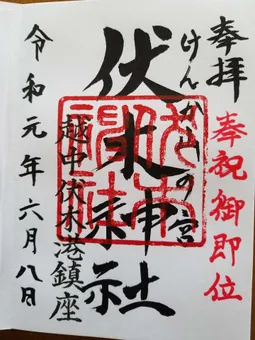 奉拝
奉祝御即位
けんか山の宮
伏木神社
越中伏木港鎮座
令和元年六月八日